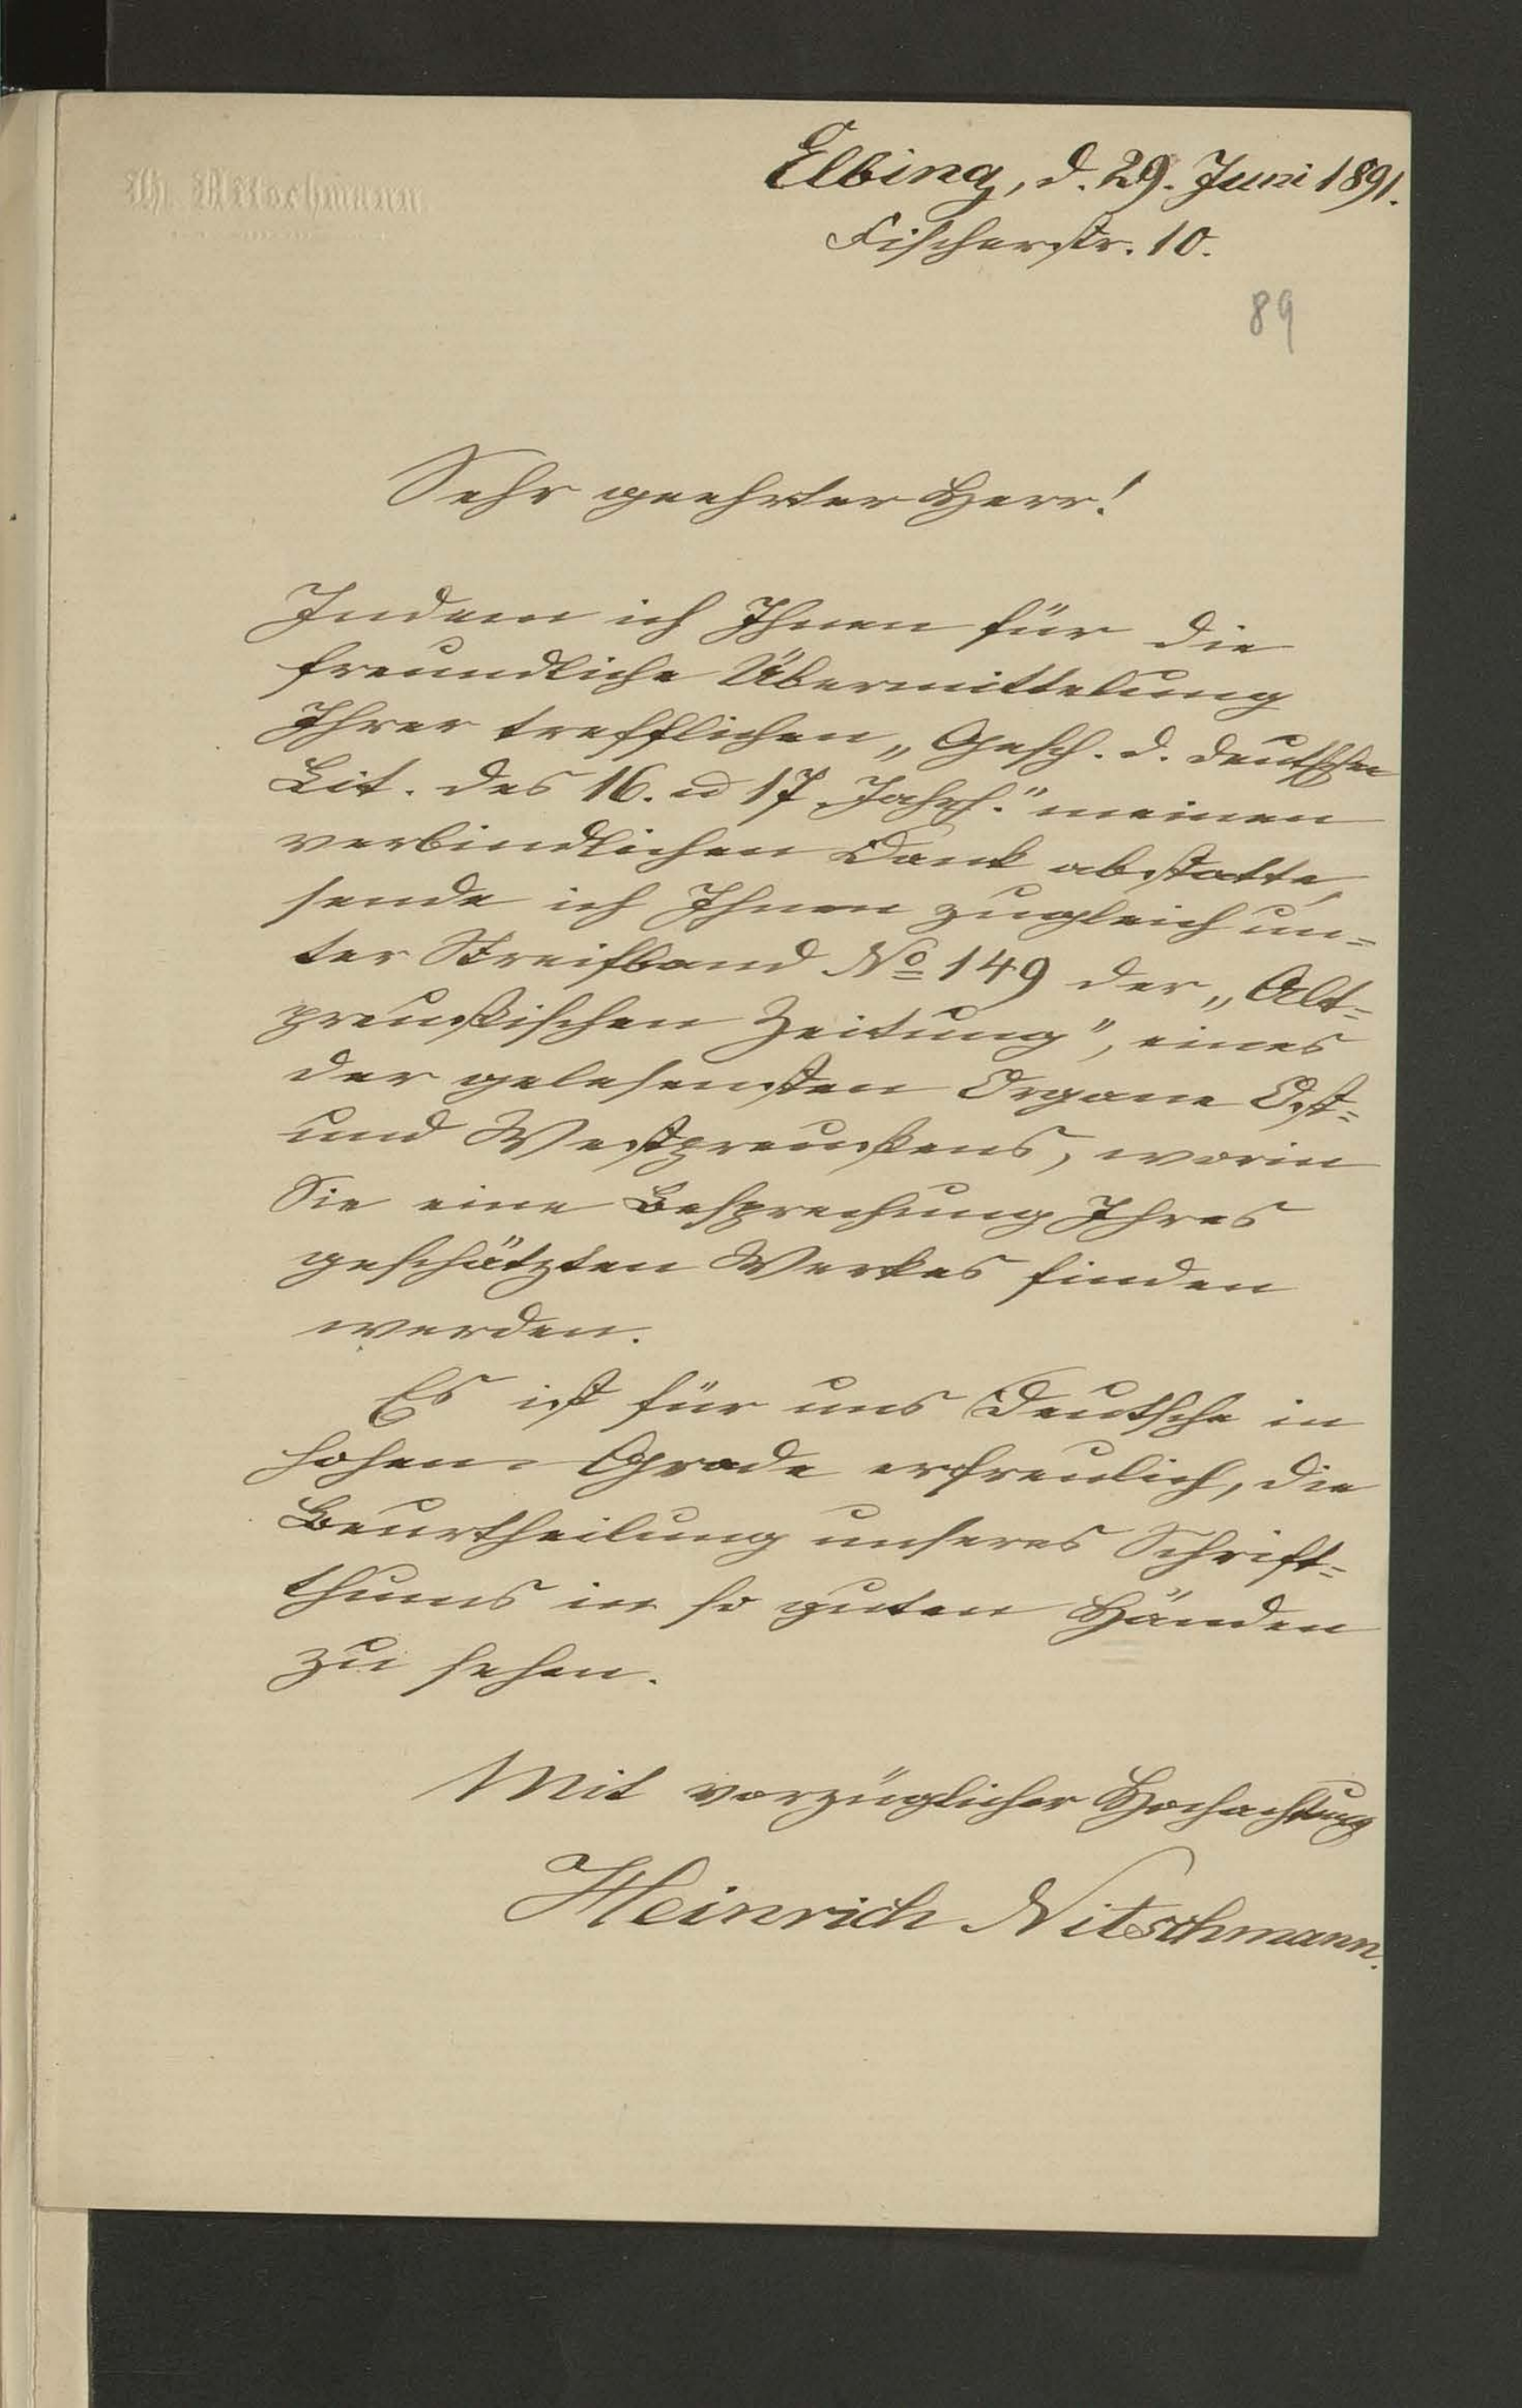 Elbing, d. 29. Juni 1891.
Fischerstr. 10.
89
Sehr geehrter Herr!
Indem ich Ihnen für die
freundliche Übermittelung
Ihrer trefflichen „Gesch. d. deutschen
Lit. des 16. u 17. Jahrh." meinen
verbindlichen Dank abstatte,
sende ich Ihnen zugleich un=
ter Streifband No 149 der „Alt=
preußischen Zeitung", eines
der gelesensten Organe Ost=
und Westpreußens, worin
Sie eine Besprechung Ihres
geschätzten Werkes finden
werden.
Es ist für uns Deutsche in
hohem Grade erfreulich, die
Beurtheilung unseres Schrift=
thums in so guten Händen
zu sehen.
Mit vorzüglicher Hochachtung
Heinrich Nitschmann.